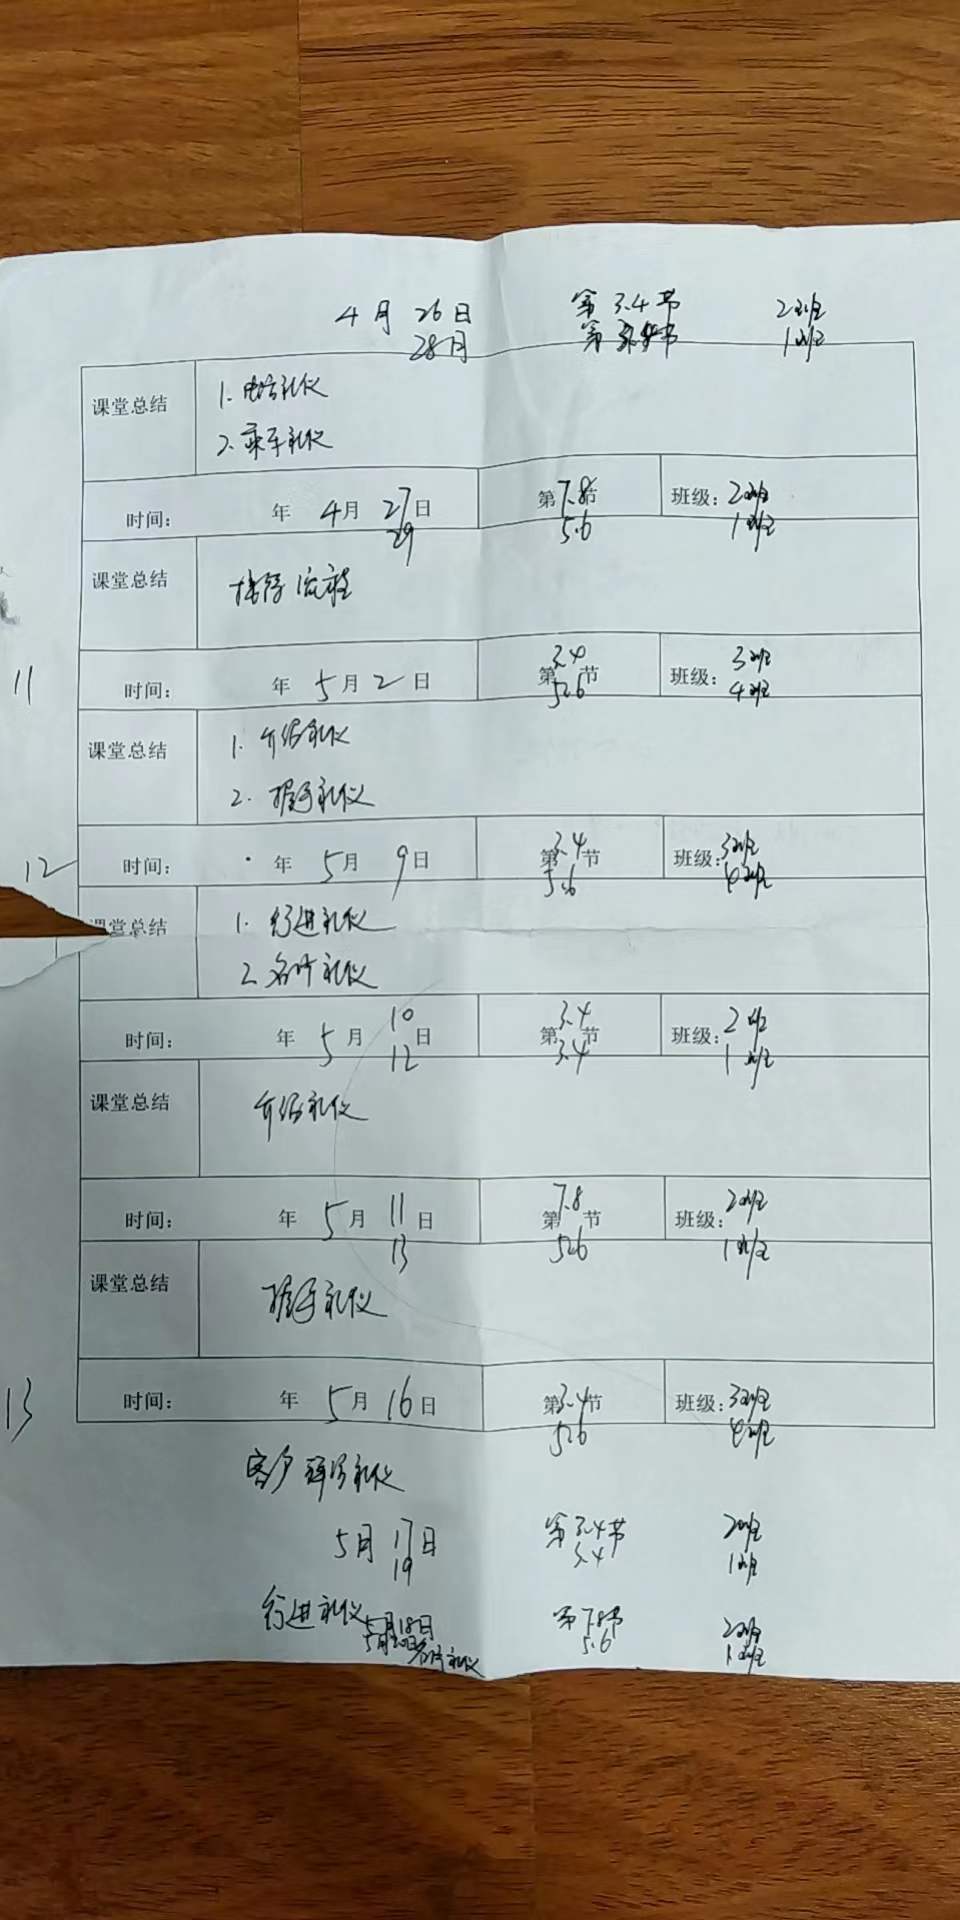 4月 26日 第 3.4节 2班
28日 第 3.4节 1班
课堂总结 1. 电话礼仪
2. 乘车礼仪
时间： 年 4月 27日 第7.8节 班级：2班
29 5.6 1班
课堂总结 接待流程
3.4 3班
11 时间： 年 5月 2日 第 节 班级：
5.6 4班
课堂总结 1. 介绍礼仪
2. 握手礼仪
12 时间： 年 5月 9日 第3.4节 班级：3班
5.6 4班
课堂总结 1. 行进礼仪
2. 名片礼仪
时间： 年 5月 10日 第3.4节 班级：2班
12 3.4 1班
课堂总结 介绍礼仪
时间： 年 5月 11日 第7.8节 班级：2班
13 5.6 1班
课堂总结 握手礼仪
13 时间： 年 5月 16日 第3.4节 班级：3班
5.6 4班
客户拜访礼仪
5月 17日 第3.4节 2班
19 3.4 1班
行进礼仪 5月18日 第7.8节 2班
名片礼仪 5.6 1班